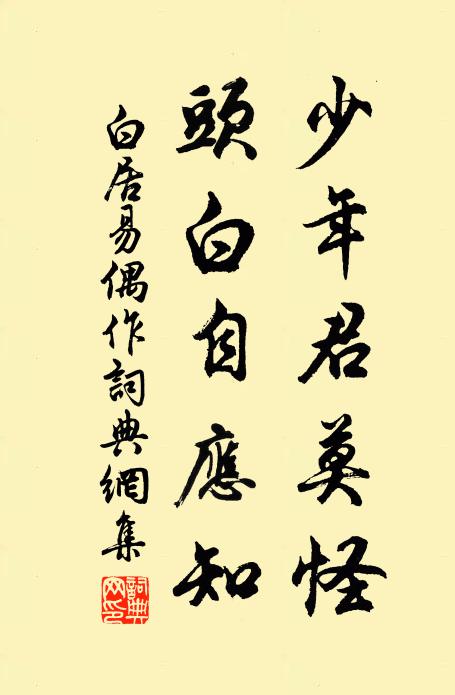 少年君莫怪
頭白自應知
白居易偶作詞典網集
詞典
网印